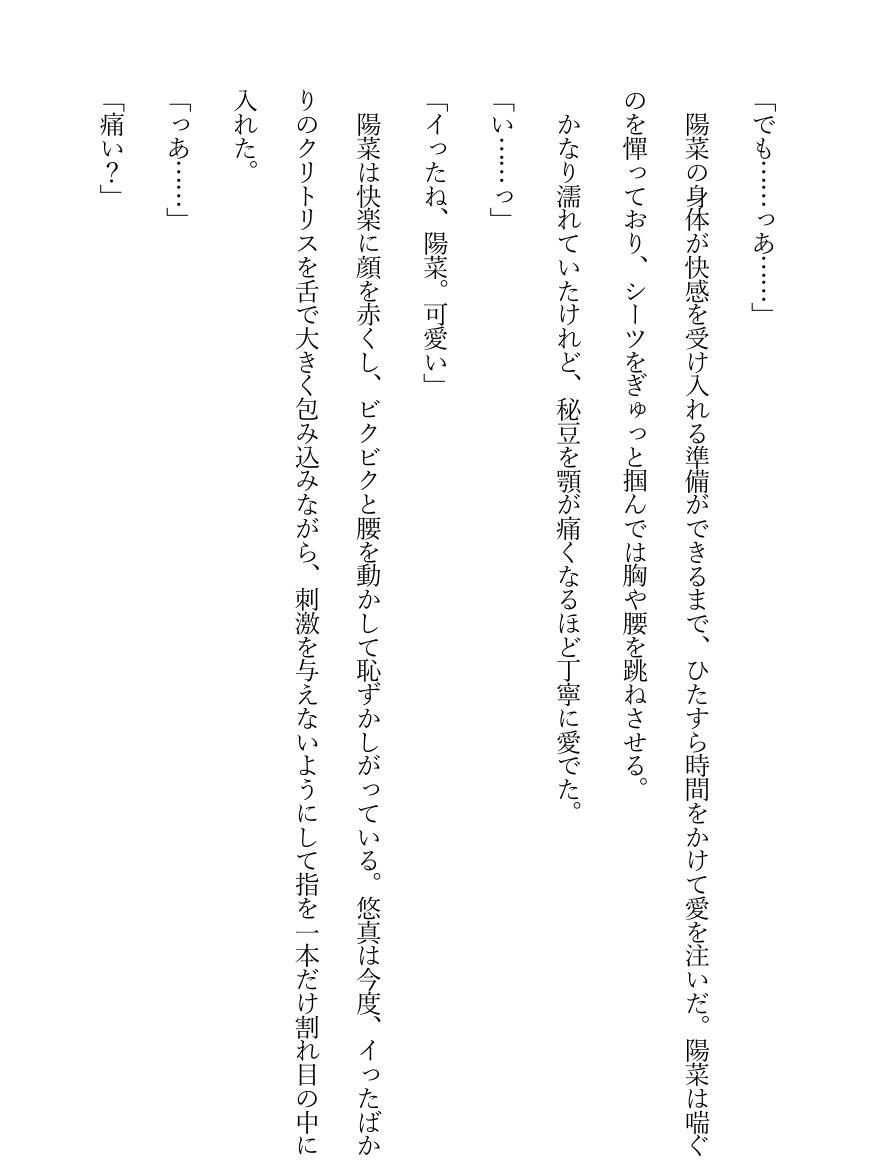 「でも……っあ……」
　陽菜の身体が快感を受け入れる準備ができるまで、ひたすら時間をかけて愛を注いだ。陽菜は喘ぐ
のを憚っており、シーツをぎゅっと掴んでは胸や腰を跳ねさせる。
　かなり濡れていたけれど、秘豆を顎が痛くなるほど丁寧に愛でた。
「い……っ」
「イったね、陽菜。可愛い」
　陽菜は快楽に顔を赤くし、ビクビクと腰を動かして恥ずかしがっている。悠真は今度、イったばか
りのクリトリスを舌で大きく包み込みながら、刺激を与えないようにして指を一本だけ割れ目の中に
入れた。
「っあ……」
「痛い？」